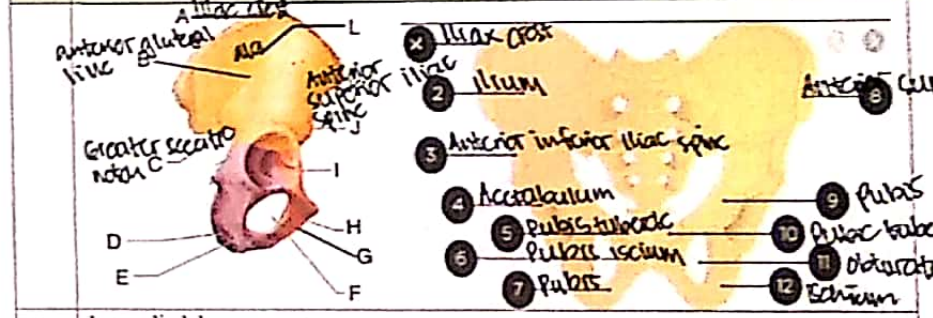 A Iliac crest
L
Anterior gluteal
line B
Ala
Anterior
superior
iliac
spine J
Greater sccatic
notch C
I
D
E
H
G
F
Iliax crost
2 Ilium
3 Anterior inferior Iliac spine
4 Acetabulum
5 Pubis tubercle
6 Pubis iscium
7 Pubis
8
Anterior
9 Pubis
10 Pubic tube
11 Obturat
12 Ischium